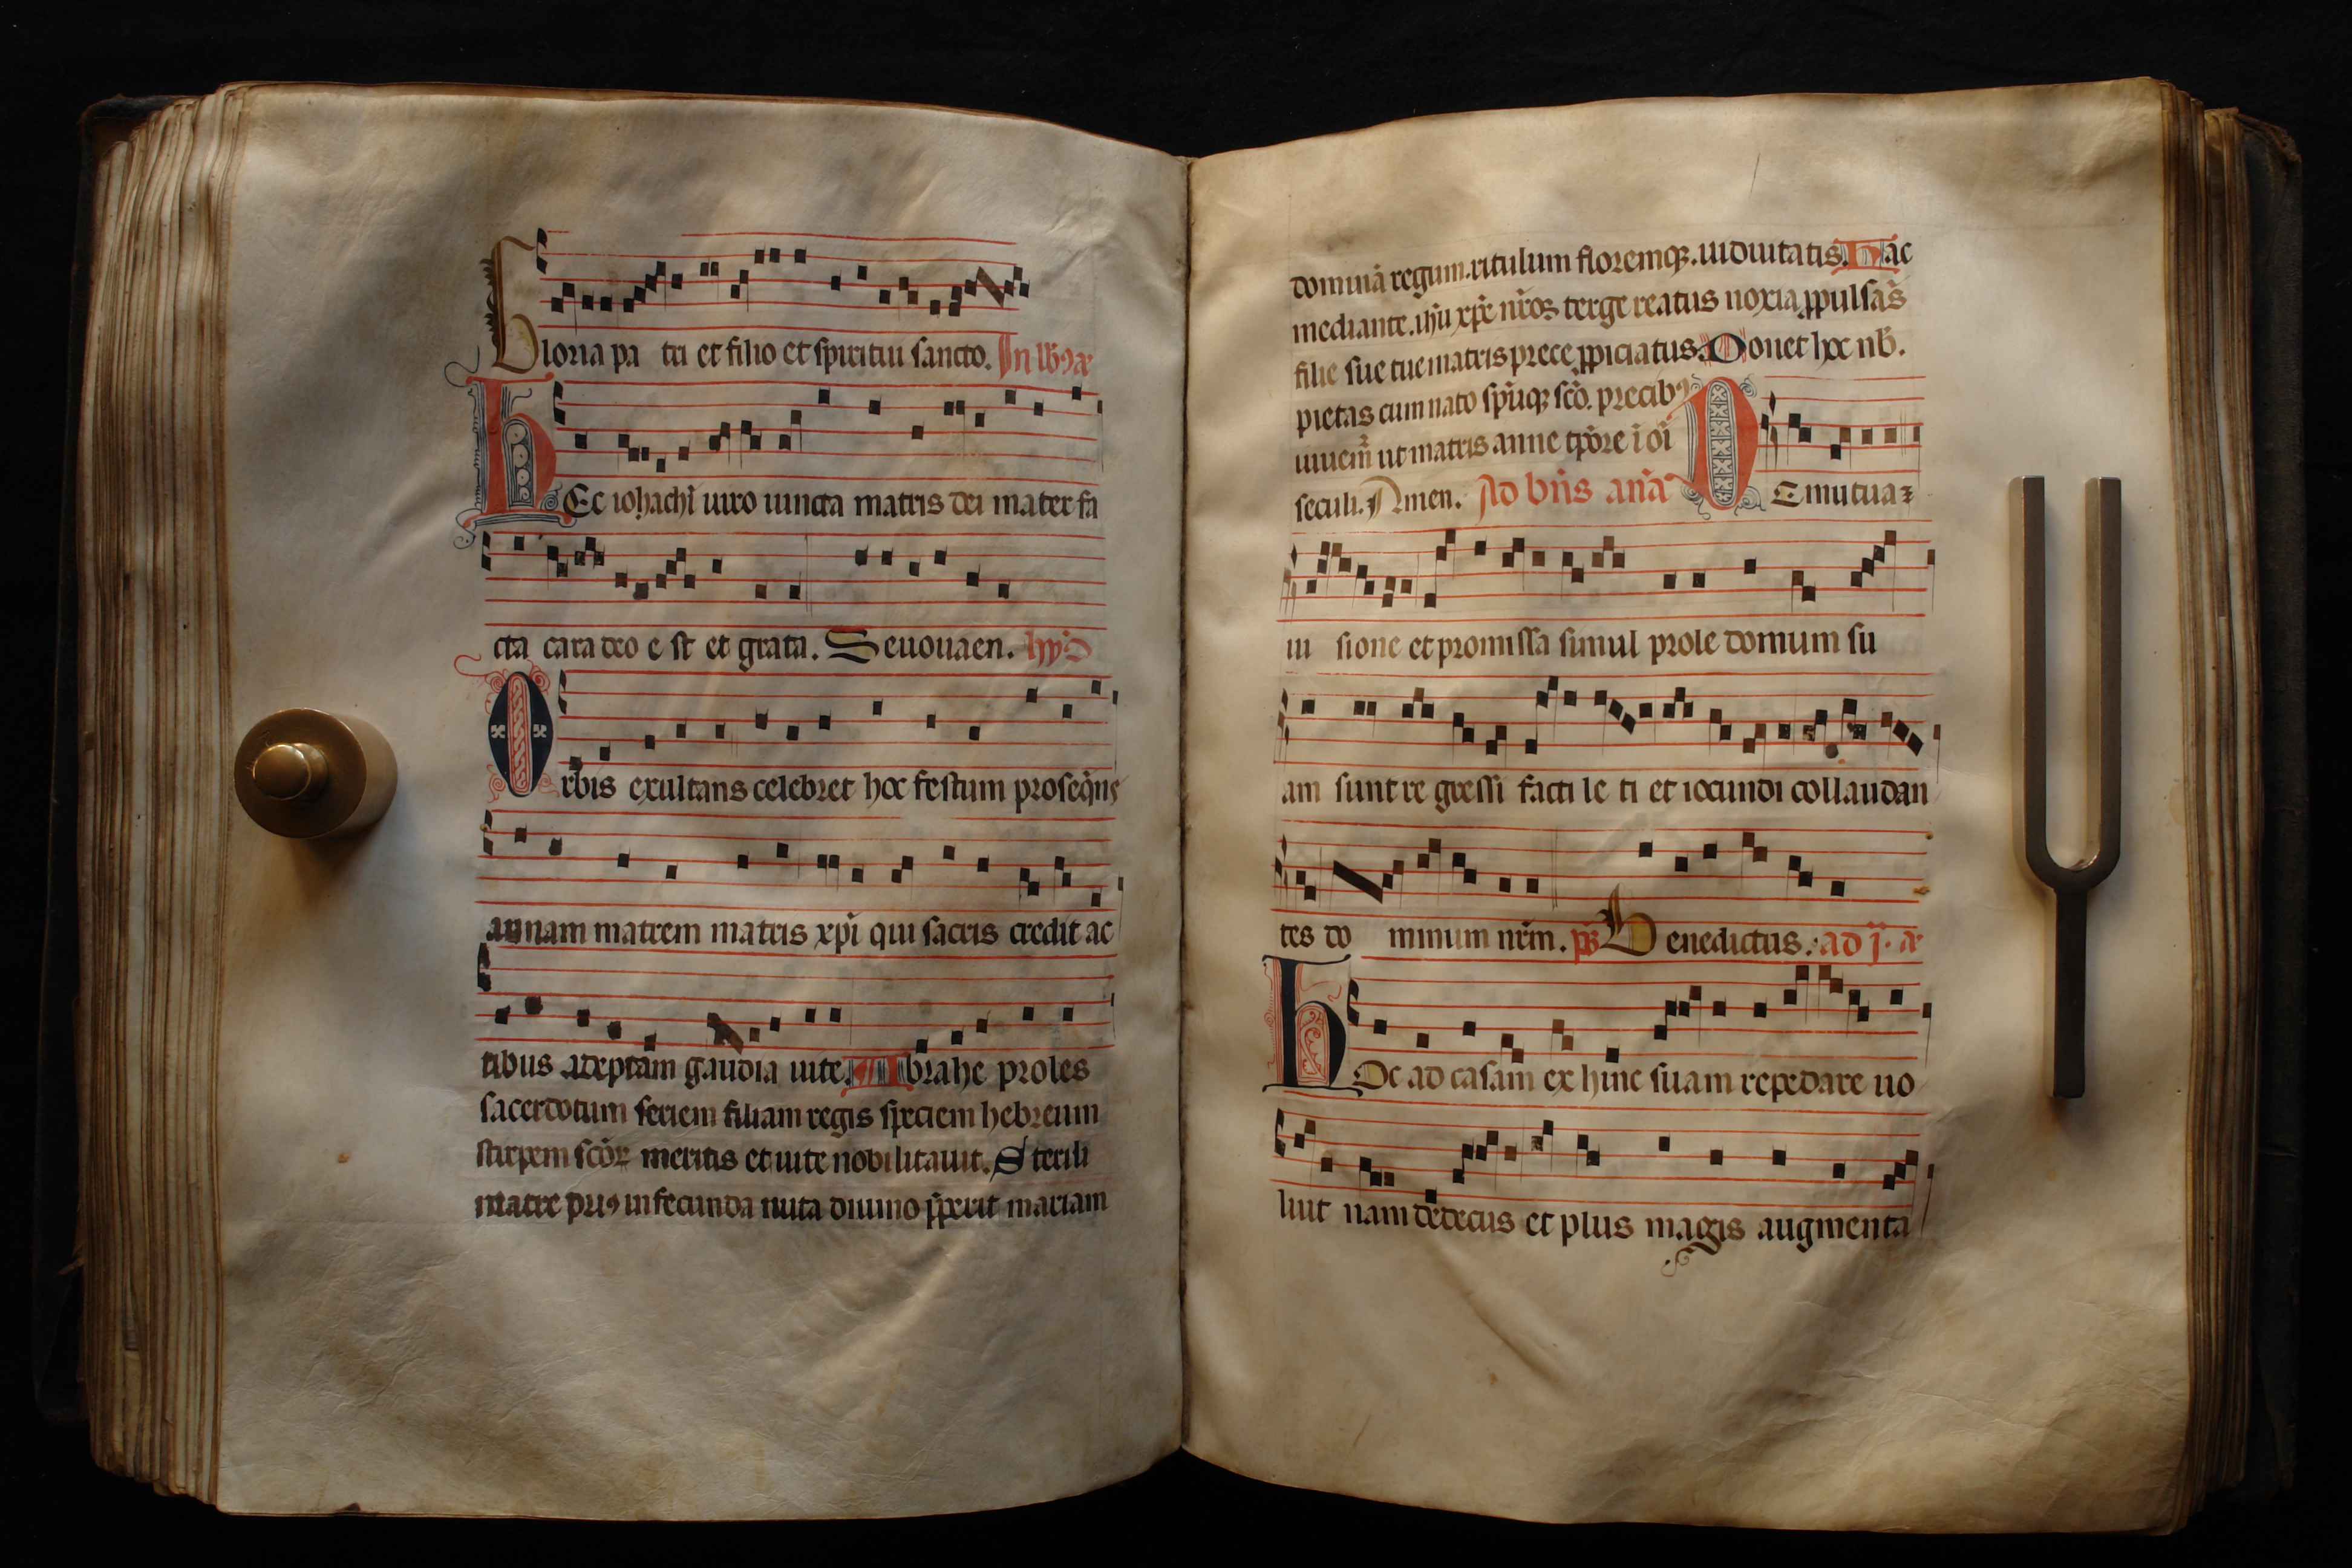 Gloria pa tri et filio et spiritui sancto. In lb᷒ æ
HEc iohachĩ uiro iuncta matris dei mater fa
cta cara deo e st et grata. Seuouaen. hyp̃
Orbis exultans celebret hoc festum proseq̃ns
annam matrem matris xp̃i qui sacris credit ac
tibus adeptam gaudia uite. Abrahe proles
sacerdotum seriem filiam regis speciem hebreum
stirpem sc̃oꝝ meritis et uite nobilitauit. Sterili
matre priꝯ infecunda nuta diuino p̃perit mariam
dominã regum.titulum floremqꝫ.uiduitatis. Hac
mediante.ih̃u xp̃e nr̃os terge reatus noxia ꝓpulsãs
filie sue tue matris prece ꝓpiciatus. Donet hoc nb̃.
pietas cum nato sp̃uiqꝫ sc̃o. precibꝯ
uiuem̃ ut matris anne tp̃ore ĩ oĩ
seculi. Amen. Ad bñs anã DE mutua ꝛ
ui sione et promissa simul prole domum su
am sunt re gressi facti le ti et iocundi collaudan
tes do minum nr̃m. ps̃ Benedictus. ad j. æ
HOc ad casam ex hinc suam repedare uo
luit nam dedecus et plus magis augmenta